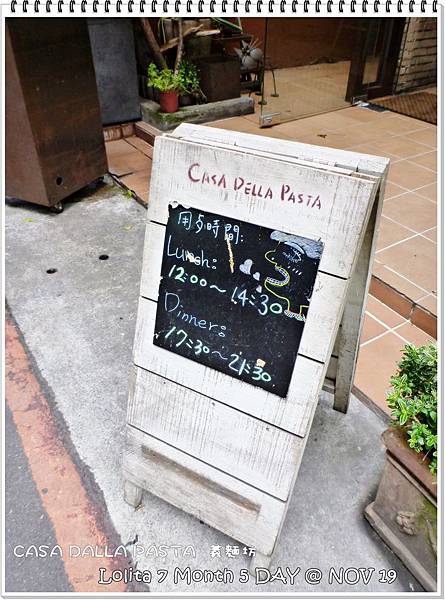 CASA DELLA PASTA
用餐時間:
Lunch:
12:00～14:30
Dinner:
17:30～21:30
CASA DALLA PASTA 義麵坊
Lolita 7 Month 5 DAY @ NOV 19